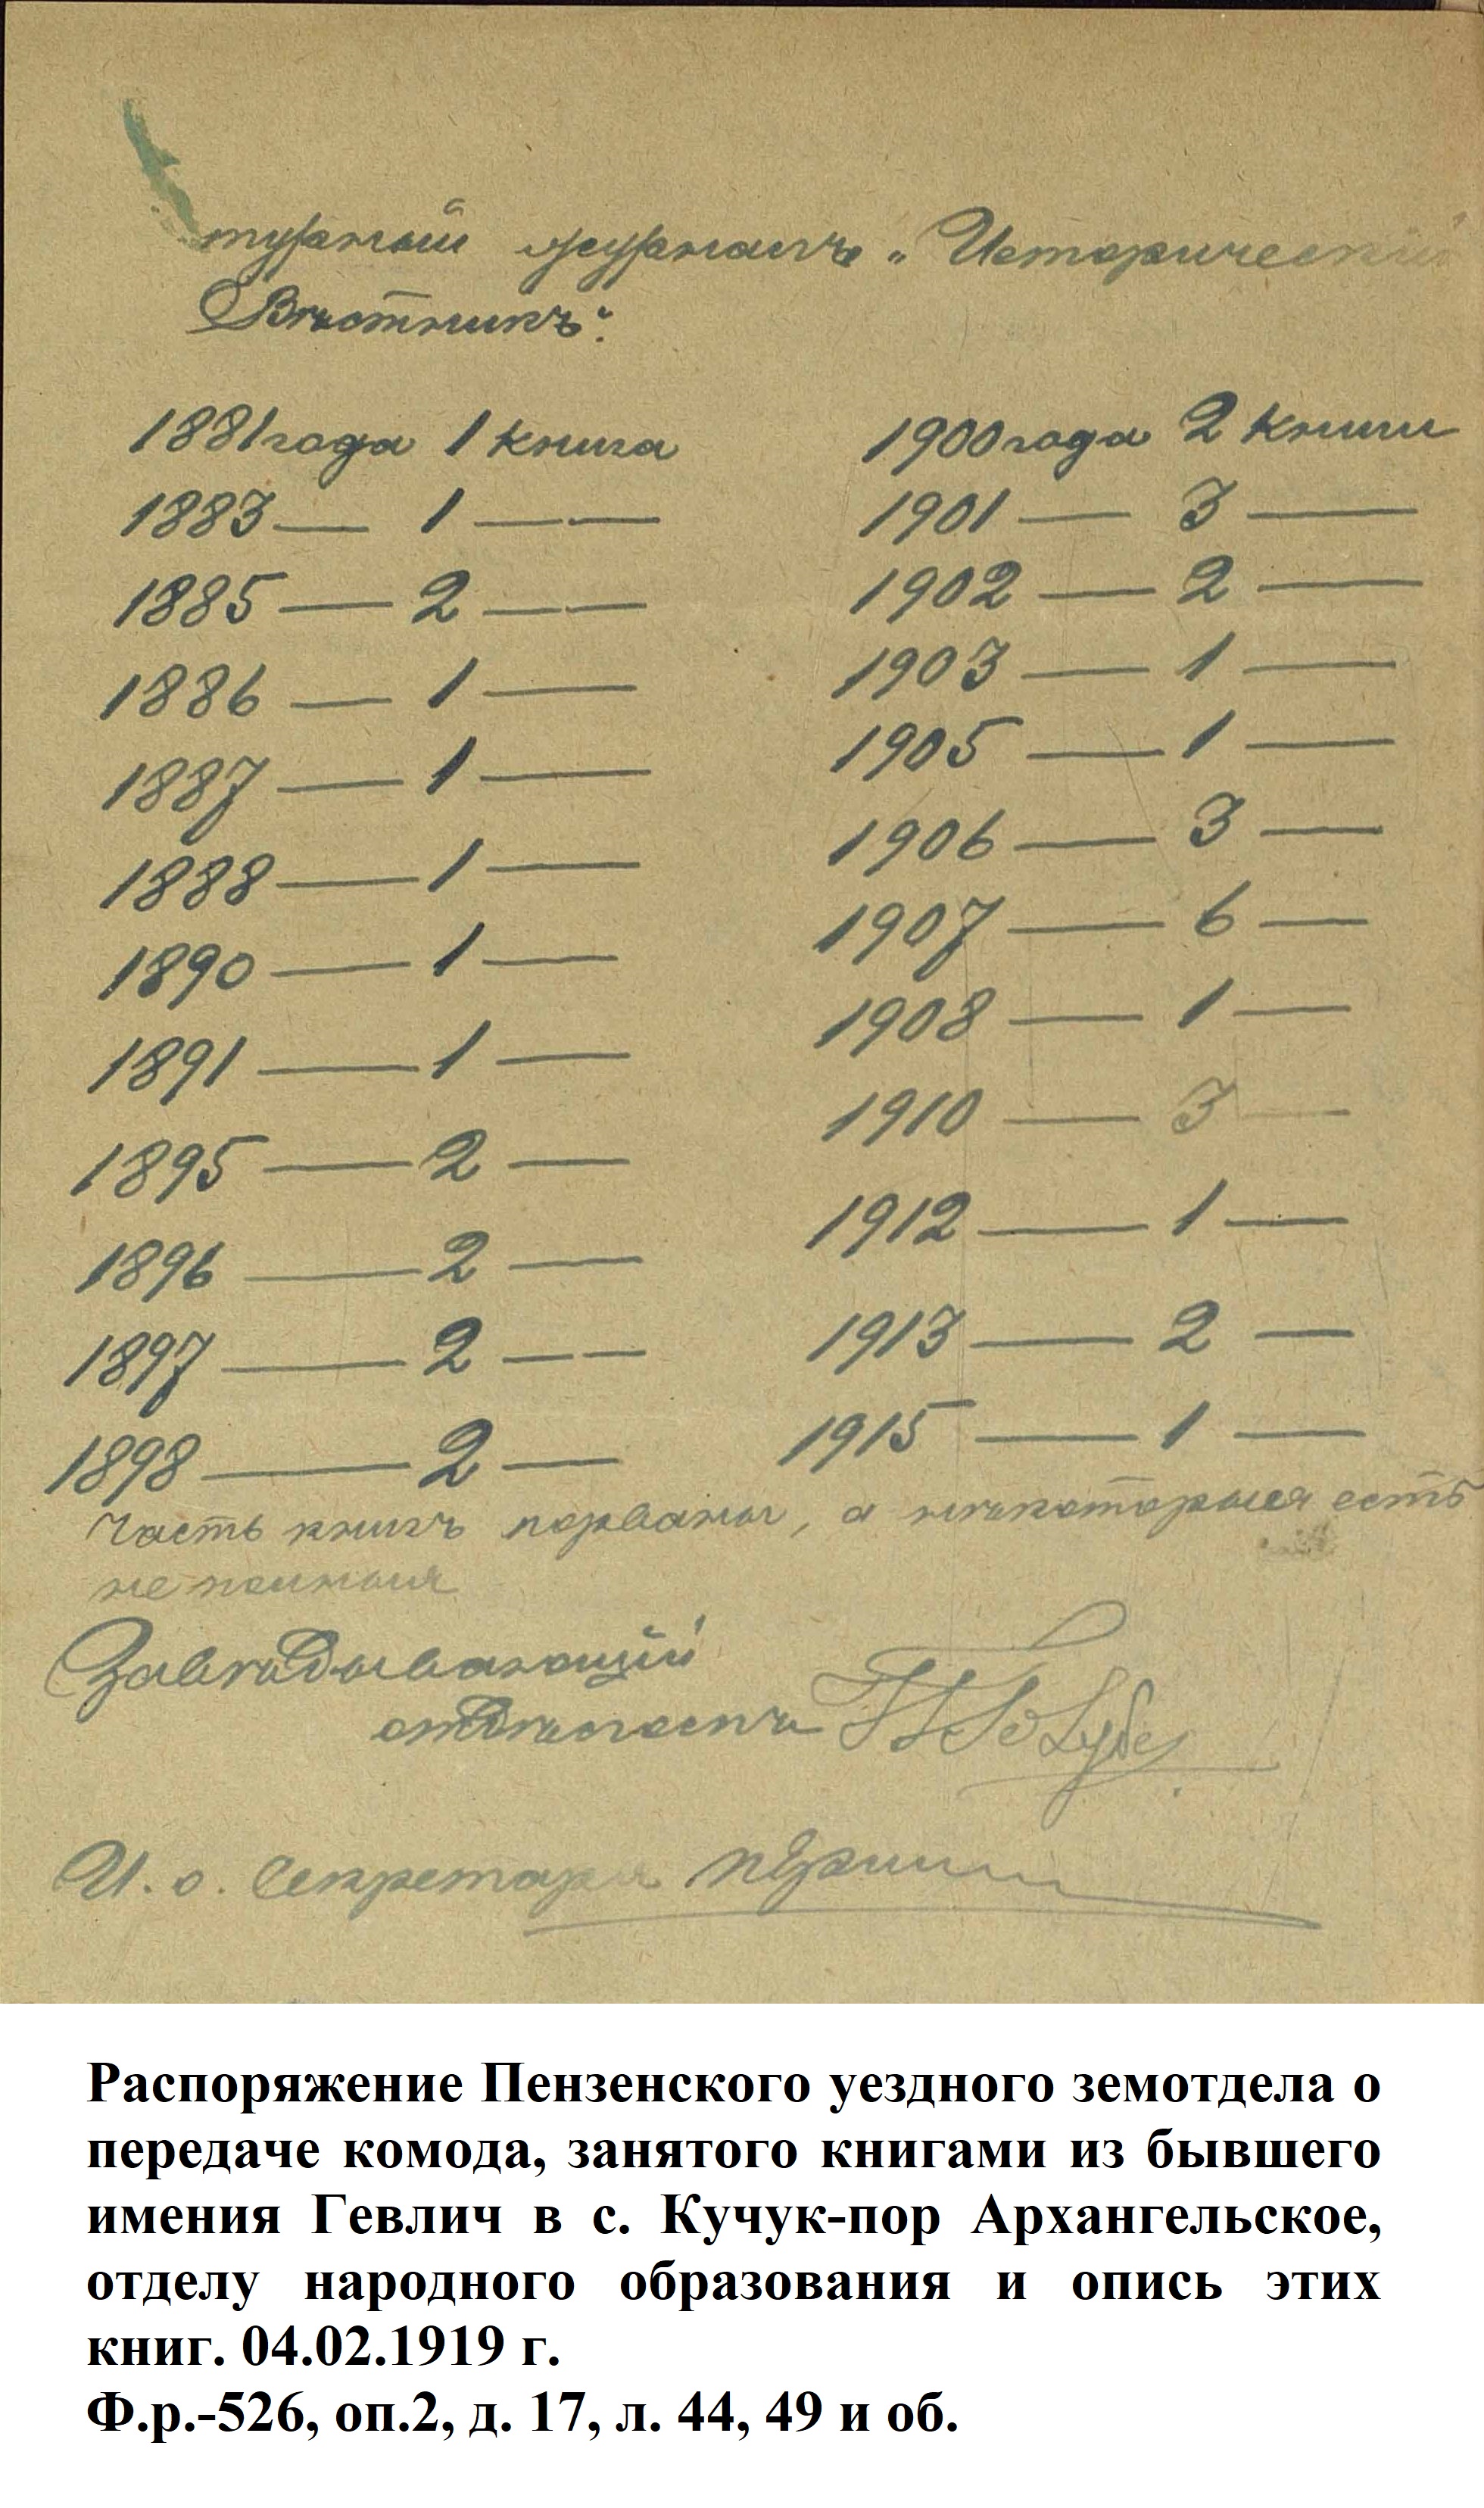 турный журналъ „Исторический
Вѣстникъ“.
1881 года 1 книга
1883 — 1 — —
1885 — 2 — —
1886 — 1 —
1887 — 1 —
1888 — 1 —
1890 — 1 —
1891 — 1 —
1895 — 2 —
1896 — 2 —
1897 — 2 — —
1898 — 2 —
1900 года 2 книги
1901 — 3 —
1902 — 2 —
1903 — 1 —
1905 — 1 —
1906 — 3 —
1907 — 6 —
1908 — 1 —
1910 — 3 —
1912 — 1 —
1913 — 2 —
1915 — 1 —
Часть книгъ порваны, а нѣкоторыя есть
не полныя
Завѣдывающий
отдѣломъ
И. о. Секретаря
Распоряжение Пензенского уездного земотдела о
передаче комода, занятого книгами из бывшего
имения Гевлич в с. Кучук-пор Архангельское,
отделу народного образования и опись этих
книг. 04.02.1919 г.
Ф.р.-526, оп.2, д. 17, л. 44, 49 и об.